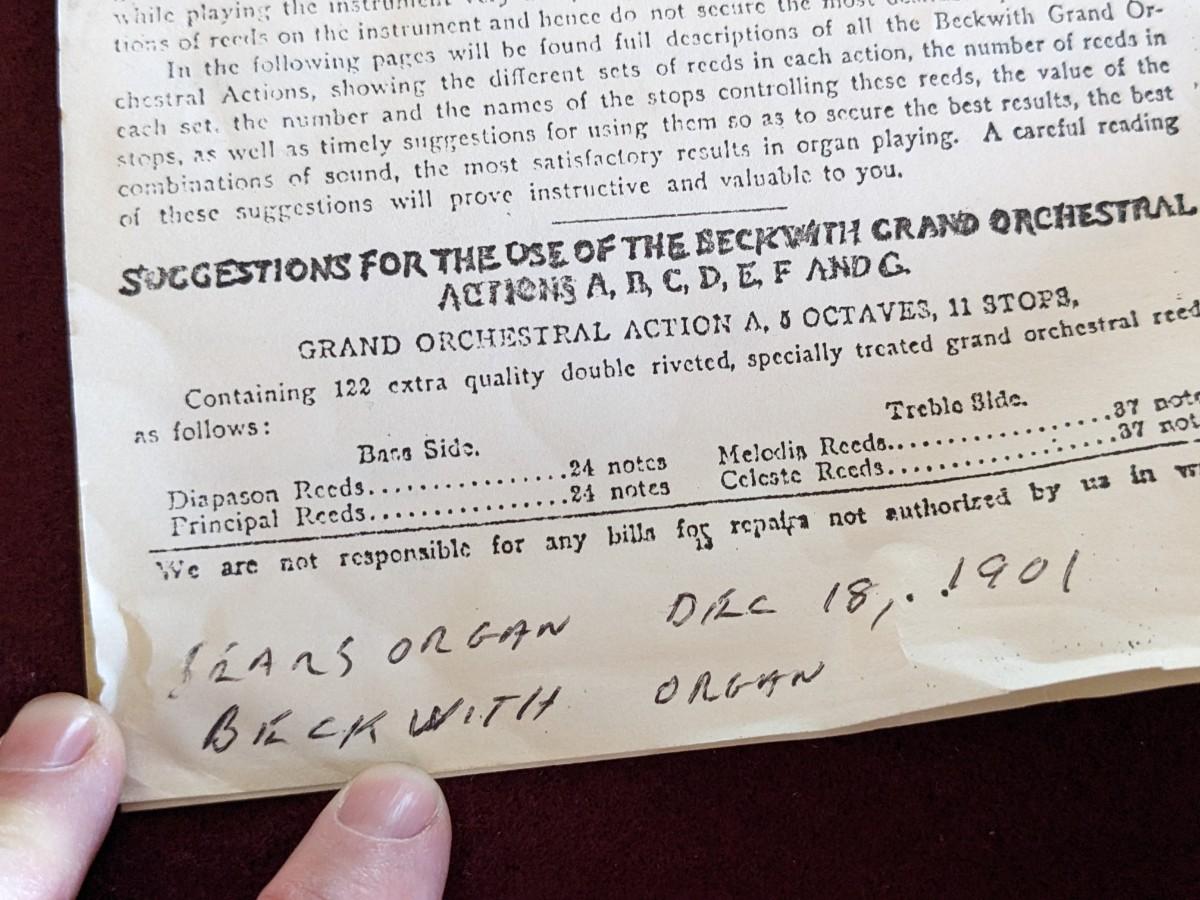 while playing the instrument very
tions of reeds on the instrument and hence do not secure the most
In the following pages will be found full descriptions of all the Beckwith Grand Or-
chestral Actions, showing the different sets of reeds in each action, the number of reeds in
each set, the number and the names of the stops controlling these reeds, the value of the
stops, as well as timely suggestions for using them so as to secure the best results, the best
combinations of sound, the most satisfactory results in organ playing. A careful reading
of these suggestions will prove instructive and valuable to you.
SUGGESTIONS FOR THE USE OF THE BECKWITH GRAND ORCHESTRAL
ACTIONS A, B, C, D, E, F AND G.
GRAND ORCHESTRAL ACTION A, 5 OCTAVES, 11 STOPS,
Containing 122 extra quality double riveted, specially treated grand orchestral reed
as follows:
Bass Side. Treble Side.
Diapason Reeds..................24 notes Melodia Reeds....................37 note
Principal Reeds..................24 notes Celeste Reeds....................37 not
We are not responsible for any bills for repairs not authorized by us in wr
13
SEARS ORGAN DEC 18, . . 1901
BECKWITH ORGAN